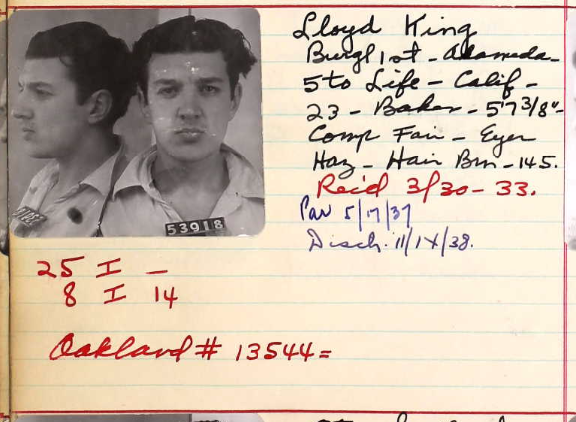 Lloyd King
Burgl 1st - Alameda -
5 to Life - Calif -
23 - Baker - 5'7 3/8" -
Comp Fair - Eyes
Haz - Hair Brn - 145.
Rec'd 3/30 - 33.
Par 5/17/37
Disch. 11/14/38.
53918
25 I —
8 I 14
Oakland # 13544 =